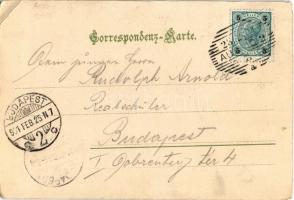 Correspondenz-Karte.
Dem jungen Herrn
Rudolph Arnold
Realschüler
Budapest
I Döbrentey tér 4
BUDAPEST
901 FEB. 25. N 7